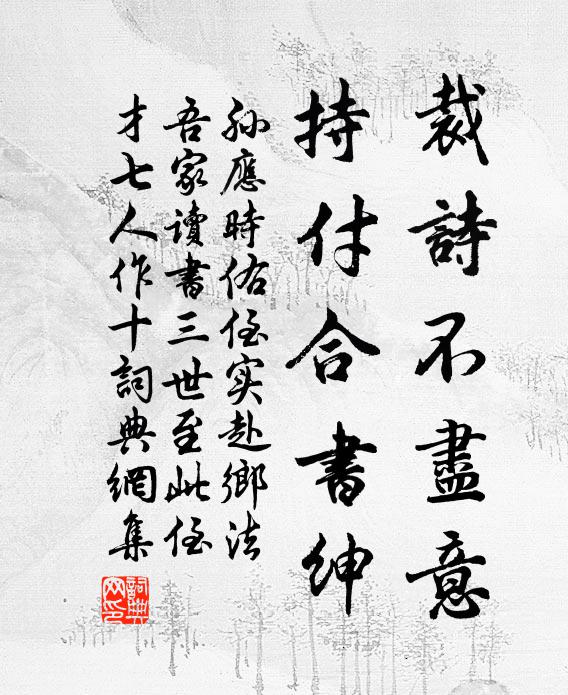 裁詩不盡意
持付合書紳
孫應時佑侄实赴鄉法
吾家讀書三世至此侄
才七人作十詞典網集
詞典
网印